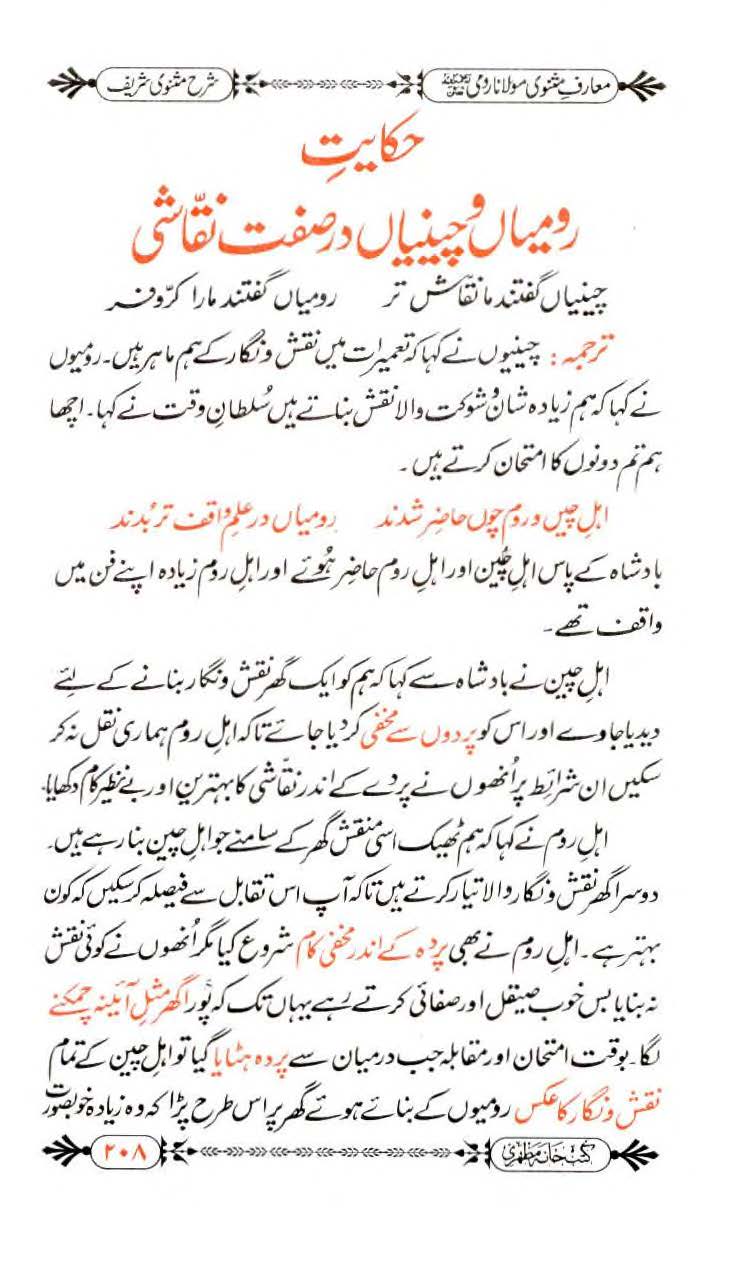 معارفِ مثنوی مولانا رومی ؒ
شرح مثنوی شریف
حکایتِ
رومیاں و چینیاں در صفت نقّاشی
چینیاں گفتند ما نقّاش تر رومیاں گفتند مارا کرّوفر
ترجمہ: چینیوں نے کہا کہ تعمیرات میں نقش ونگار کے ہم ماہر ہیں۔ رومیوں
نے کہا کہ ہم زیادہ شان و شوکت والا نقش بناتے ہیں سُلطانِ وقت نے کہا۔ اچھا
ہم تم دونوں کا امتحان کرتے ہیں۔
اہلِ چیں و روم چوں حاضر شدند رومیاں در علم واقف تر بُدند
بادشاہ کے پاس اہلِ چین اور اہلِ روم حاضر ہُوئے اور اہلِ روم زیادہ اپنے فن میں
واقف تھے۔
اہلِ چین نے بادشاہ سے کہا کہ ہم کو ایک گھر نقش ونگار بنانے کے لئے
دیدیا جاوے اور اس کو پردوں سے مخفی کر دیا جائے تاکہ اہلِ روم ہماری نقل نہ کر
سکیں ان شرائط پر اُنھوں نے پردے کے اندر نقّاشی کا بہترین اور بے نظیر کام دکھایا۔
اہلِ روم نے کہا کہ ہم ٹھیک اسی منقش گھر کے سامنے جو اہلِ چین بنا رہے ہیں۔
دوسرا گھر نقش ونگار والا تیار کرتے ہیں تاکہ آپ اس تقابل سے فیصلہ کر سکیں کہ کون
بہتر ہے۔ اہلِ روم نے بھی پردہ کے اندر مخفی کام شروع کیا مگر اُنھوں نے کوئی نقش
نہ بنایا بس خوب صیقل اور صفائی کرتے رہے یہاں تک کہ پُورا گھر مثلِ آئینہ چمکنے
لگا۔ بوقت امتحان اور مقابلہ جب درمیان سے پردہ ہٹایا گیا تو اہلِ چین کے تمام
نقش ونگار کا عکس رومیوں کے بنائے ہوئے گھر پر اس طرح پڑا کہ وہ زیادہ خوبصورت
کتب خانہ مظہری
۲۰۸